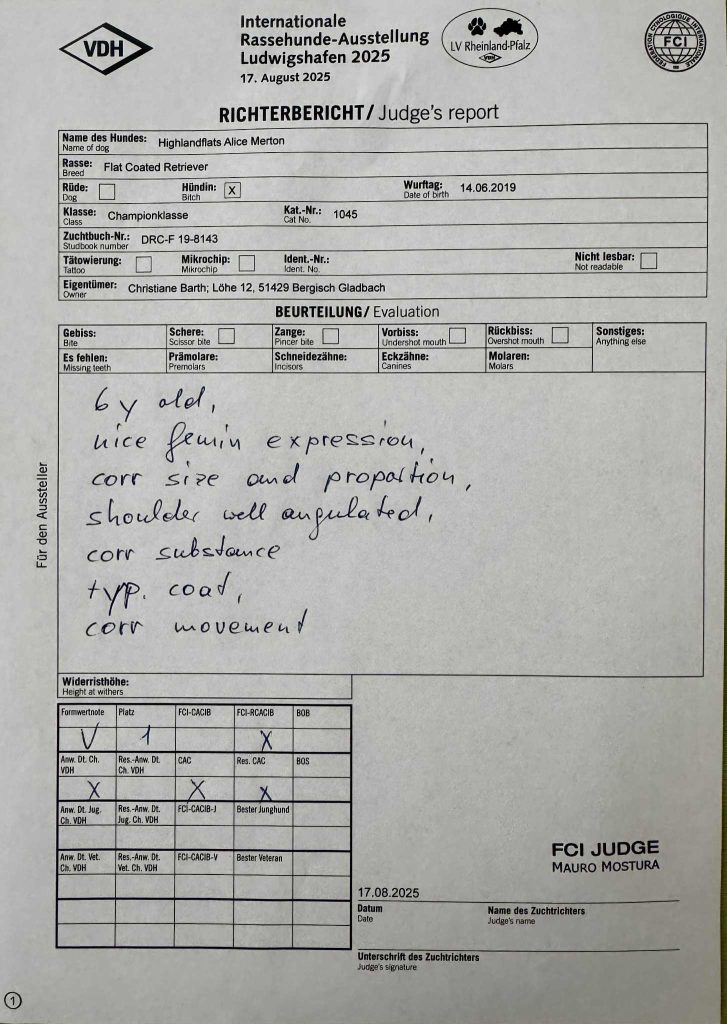 VDH
Internationale
Rassehunde-Ausstellung
Ludwigshafen 2025
17. August 2025
LV Rheinland-Pfalz
VDH
FEDERATION CYNOLOGIQUE INTERNATIONALE
FCI
RICHTERBERICHT/ Judge's report
Name des Hundes: Highlandflats Alice Merton
Name of dog
Rasse: Flat Coated Retriever
Breed
Rüde: Hündin: X Wurftag: 14.06.2019
Dog Bitch Date of birth
Klasse: Championklasse Kat.-Nr.: 1045
Class Cat No.
Zuchtbuch-Nr.: DRC-F 19-8143
Studbook number
Tätowierung: Mikrochip: Ident.-Nr.: Nicht lesbar:
Tattoo Mikrochip Ident. No. Not readable
Eigentümer: Christiane Barth; Löhe 12, 51429 Bergisch Gladbach
Owner
BEURTEILUNG/ Evaluation
Gebiss: Schere: Zange: Vorbiss: Rückbiss: Sonstiges:
Bite Scissor bite Pincer bite Undershot mouth Overshot mouth Anything else
Es fehlen: Prämolare: Schneidezähne: Eckzähne: Molaren:
Missing teeth Premolars Incisors Canines Molars
Für den Aussteller
6 y old,
nice femin expression,
corr size and proportion,
shoulder well angulated,
corr substance
typ. coat,
corr movement
Widerristhöhe:
Height at withers
Formwertnote Platz FCI-CACIB FCI-RCACIB BOB
V 1 X
Anw. Dt. Ch. VDH Res.-Anw. Dt. Ch. VDH CAC Res. CAC BOS
X X X
Anw. Dt. Jug. Ch. VDH Res.-Anw. Dt. Jug. Ch. VDH FCI-CACIB-J Bester Junghund
Anw. Dt. Vet. Ch. VDH Res.-Anw. Dt. Vet. Ch. VDH FCI-CACIB-V Bester Veteran
FCI JUDGE
MAURO MOSTURA
17.08.2025
Datum Name des Zuchtrichters
Date Judge's name
Unterschrift des Zuchtrichters
Judge's signature
1